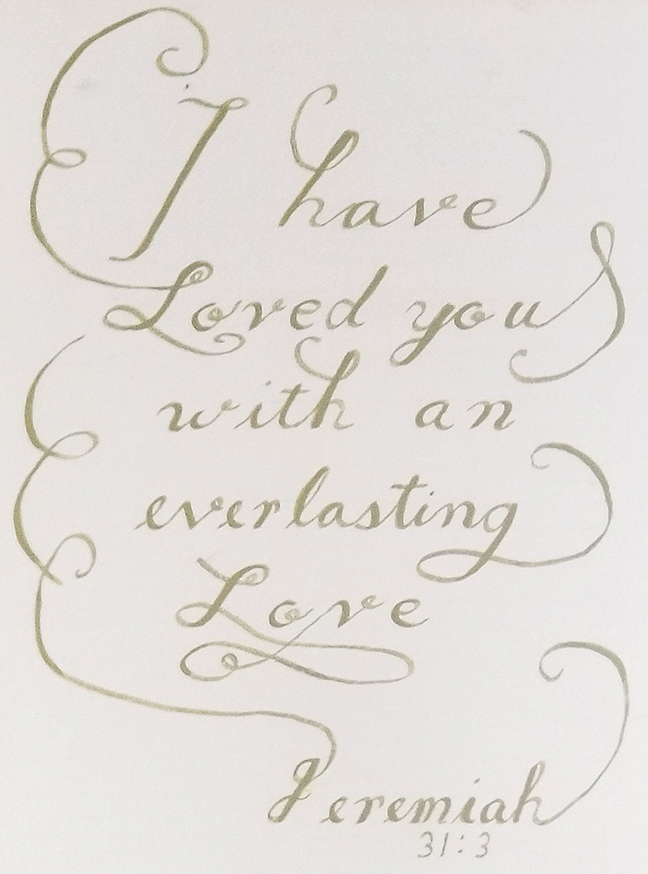 I have
Loved you
with an
everlasting
Love
Jeremiah
31:3